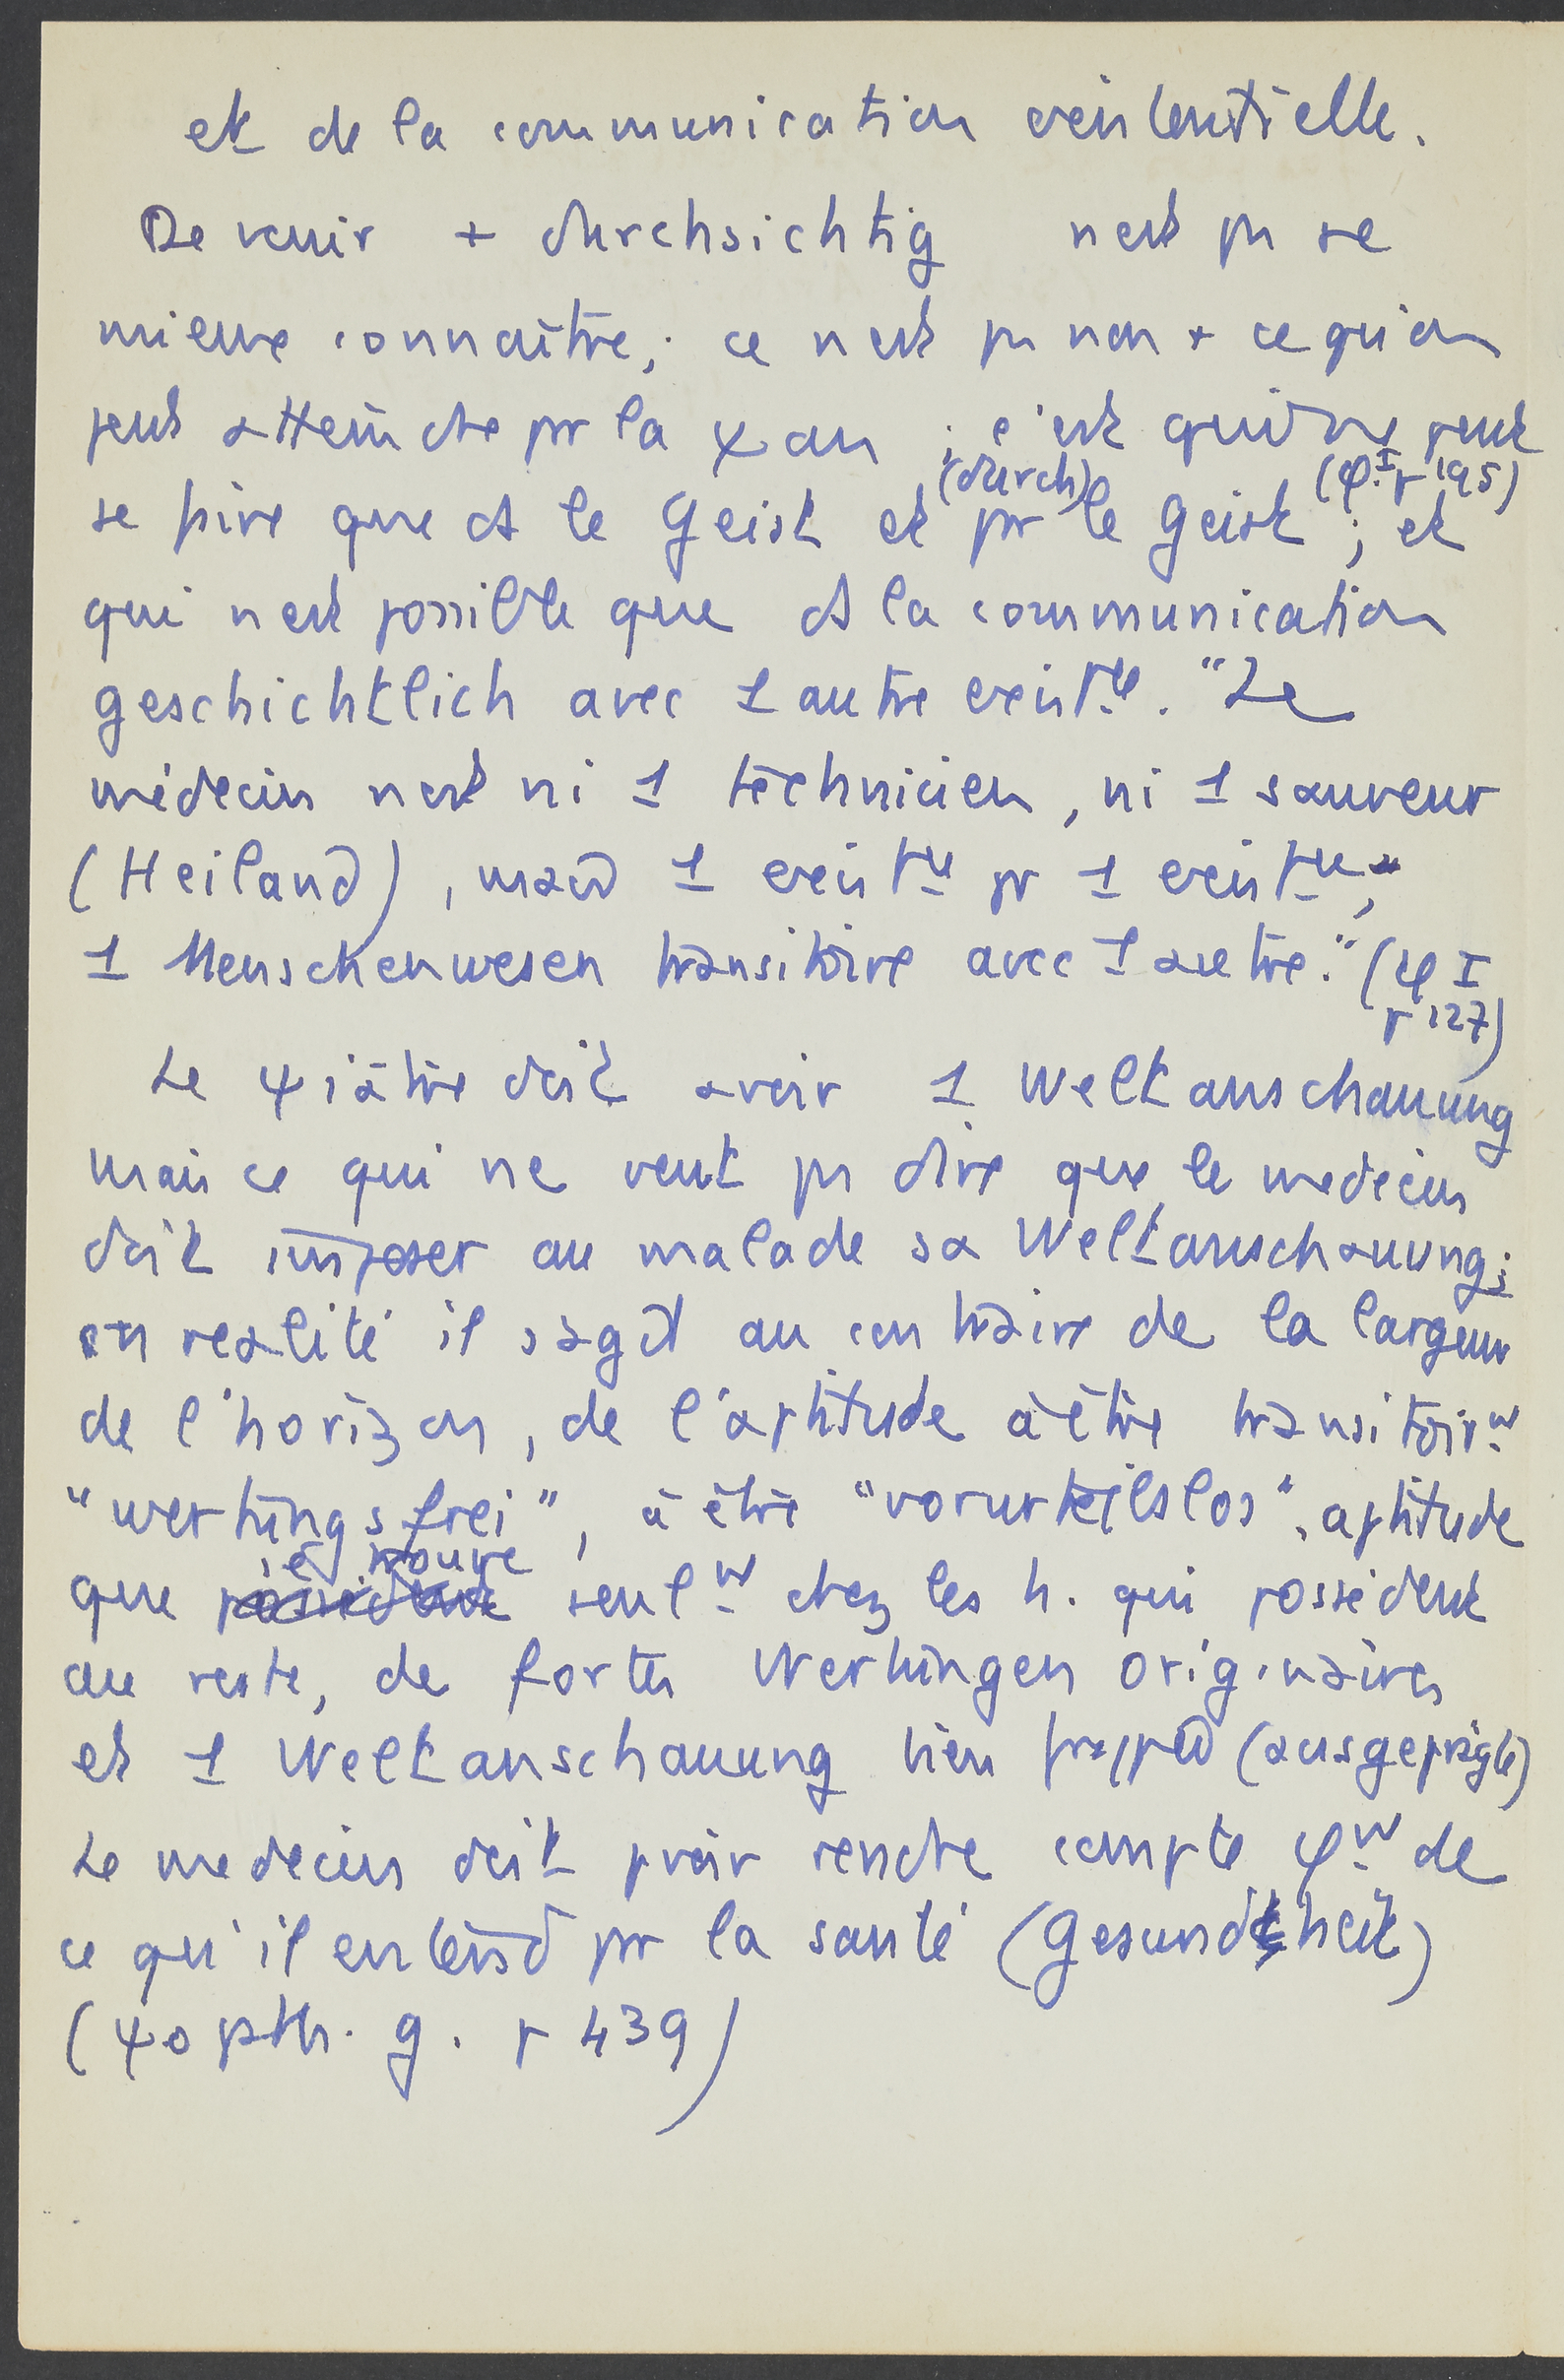 et de la communication existentielle.
Devenir + durchsichtig n'est pas se
mieux connaître ; ce n'est pas non + ce qu'on
peut atteindre par la ψan ; c'est qui ne peut
(durch) (φ I p 195)
se faire que ds le Geist et par le Geist ; et
qui n'est possible que ds la communication
geschichtlich avec 1 autre existce. "Le
médecin n'est ni 1 technicien, ni 1 sauveur
(Heiland), mais 1 existce pr 1 existce,
1 Menschenwesen transitoire avec 1 autre." (φ I
p 127)
Le ψiâtre doit avoir 1 Weltanschauung
mais ce qui ne veut pas dire que le médecin
doit imposer au malade sa Weltanschauung ;
en réalité il s'agit au contraire de la largeur
de l'horizon, de l'aptitude à être transitoirt
"wertungsfrei", à être "vorurteilslos", aptitude
se trouve
que seult chez les h. qui possèdent
au reste, de fortes Wertungen originaires
et 1 Weltanschauung bien frappée (ausgeprägte)
Le médecin doit pvoir rendre compte φt de
ce qu'il entend par la santé (Gesundheit)
(ψo pth. g. p 439)